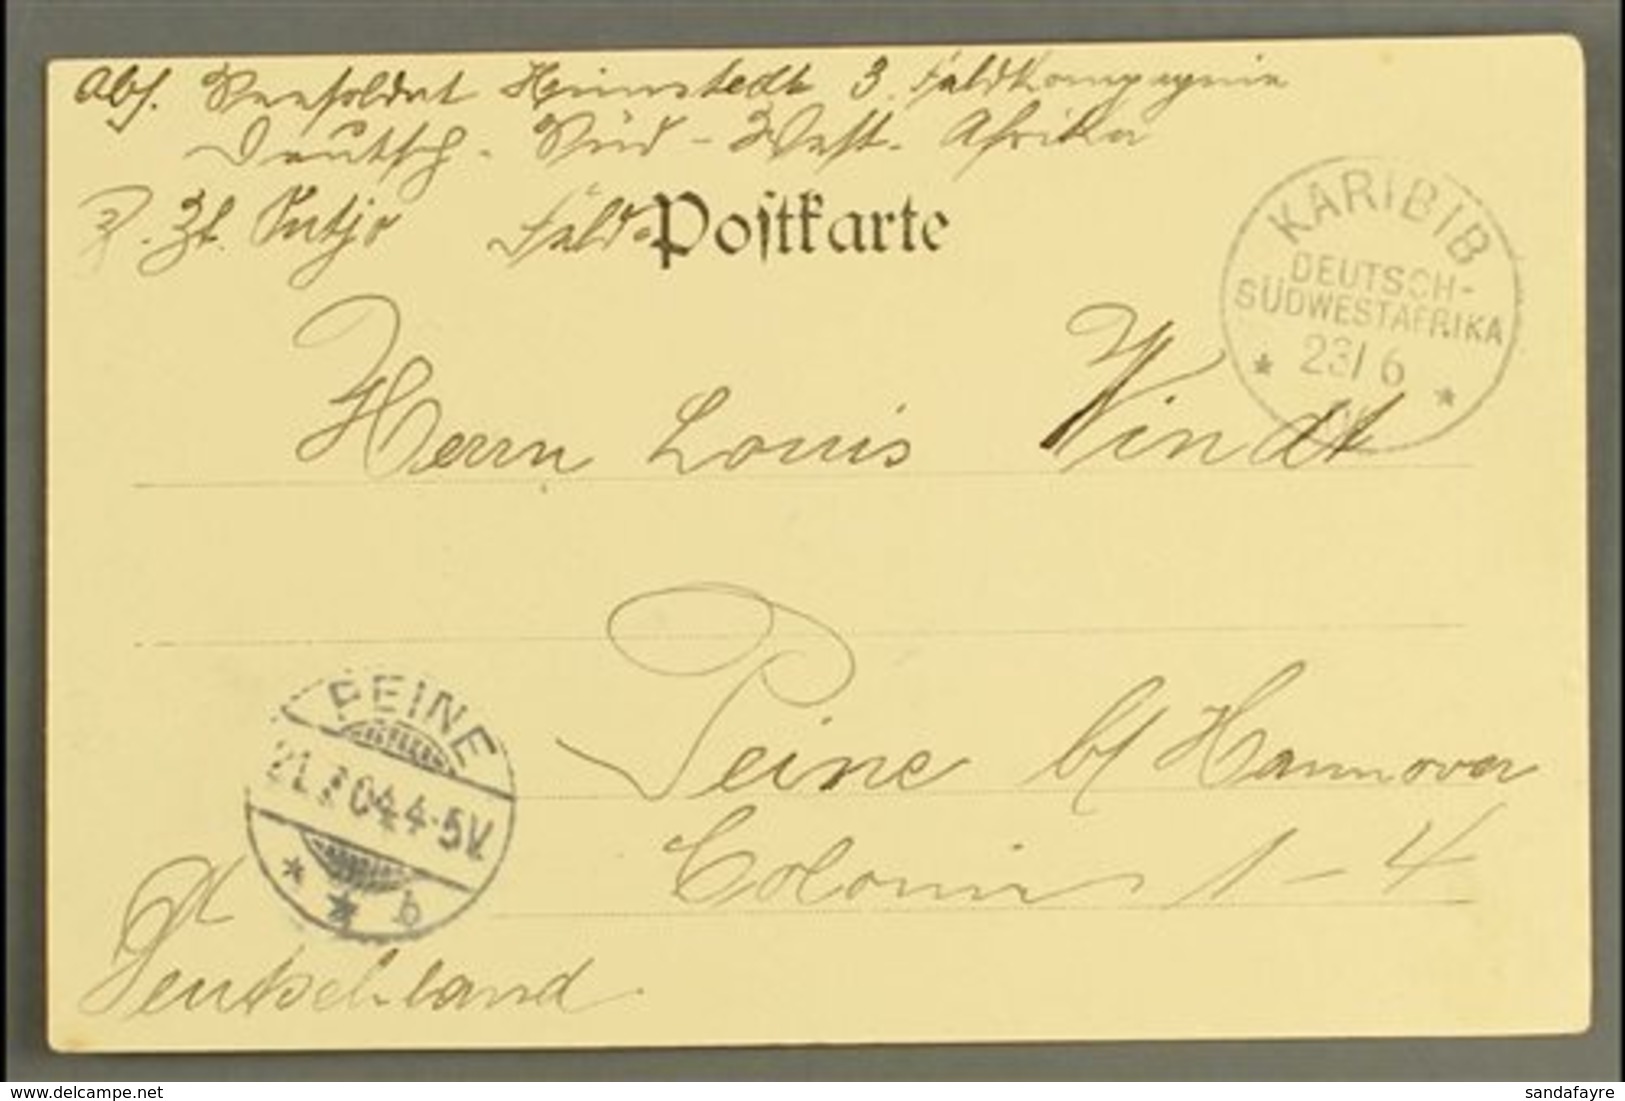 Abs. Seesoldat Heimstedt 3. Feldkompagnie
Deutsch - Süd - West - Afrika
z. Zt. Outjo Feld-Postkarte
KARIBIB
DEUTSCH-
SÜDWESTAFRIKA
23/6
Herrn Louis Windt
PEINE
21.7.04.4-5V.
* * b
Peine b/ Hannover
Colonie 1-4
Deutschland.
www.delcampe.net
sandafayre